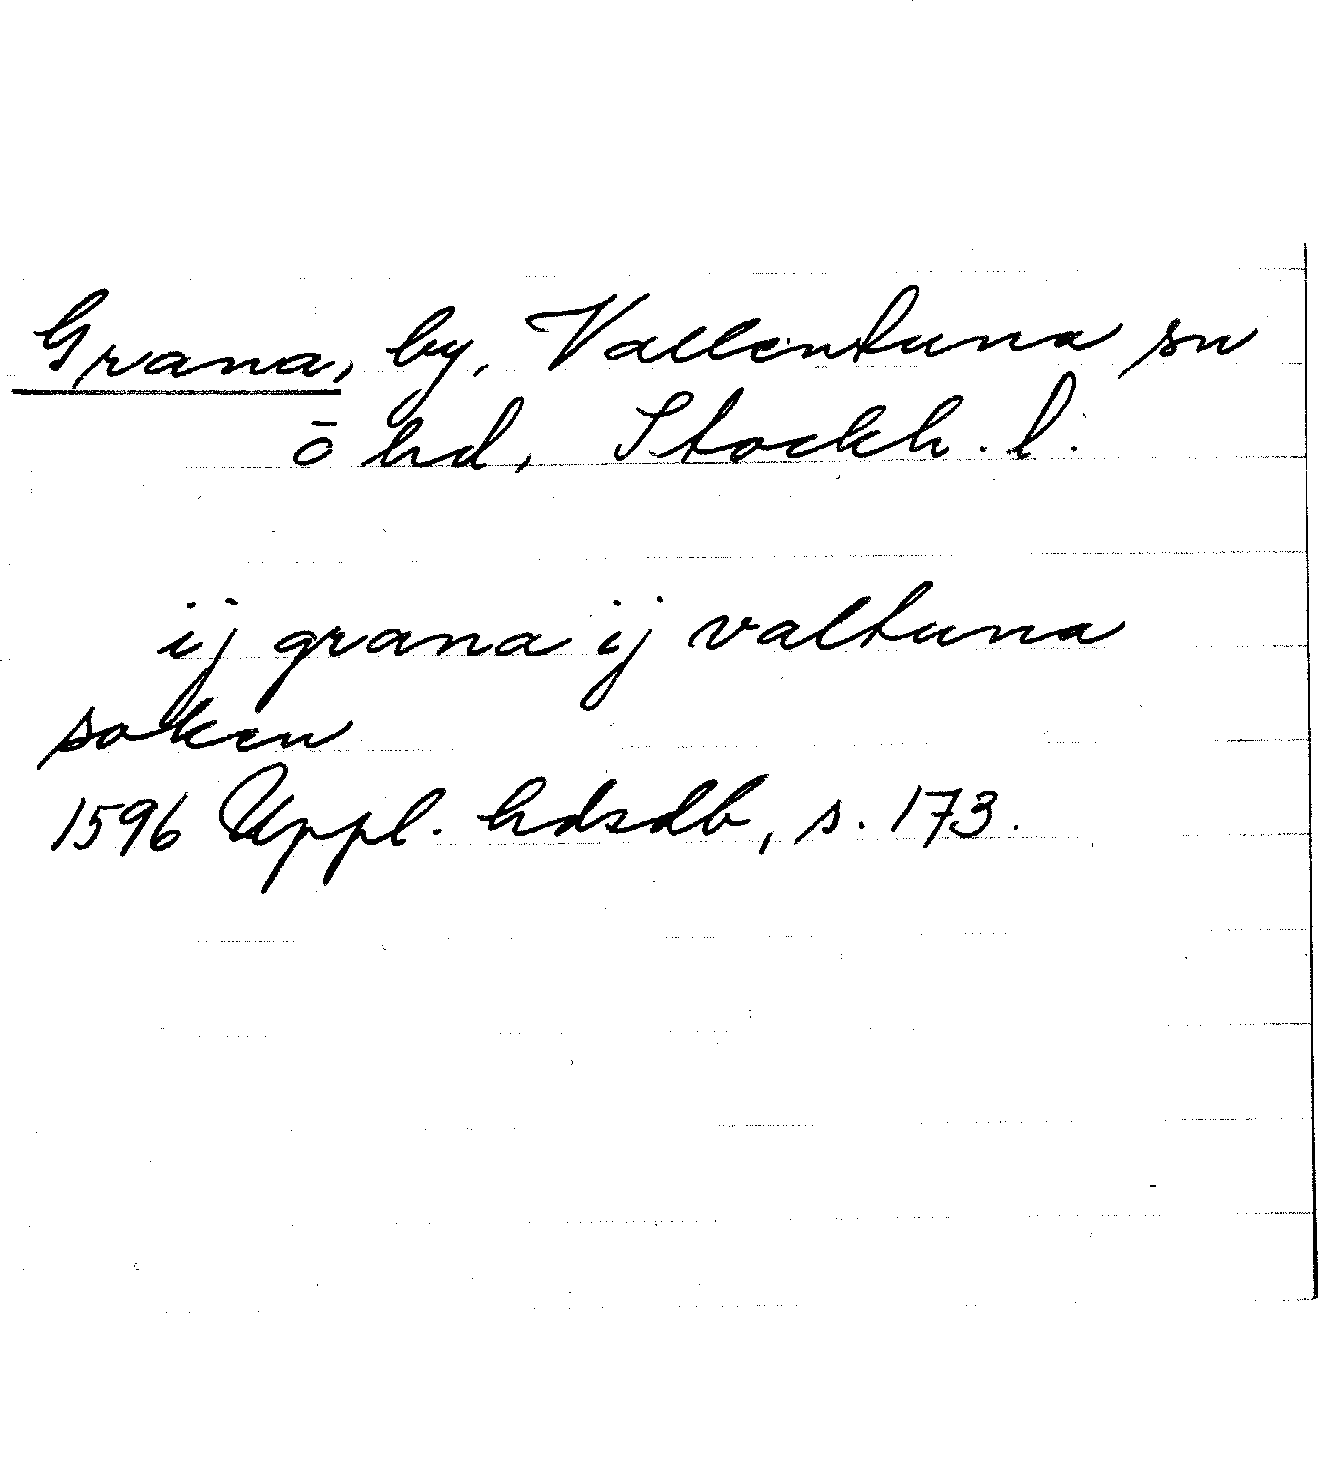 Grana, by, Vallentuna sn
ō hd, Stockh. l.
ij grana ij valtuna
soken
1596 Uppl. hdsdb, s. 173.